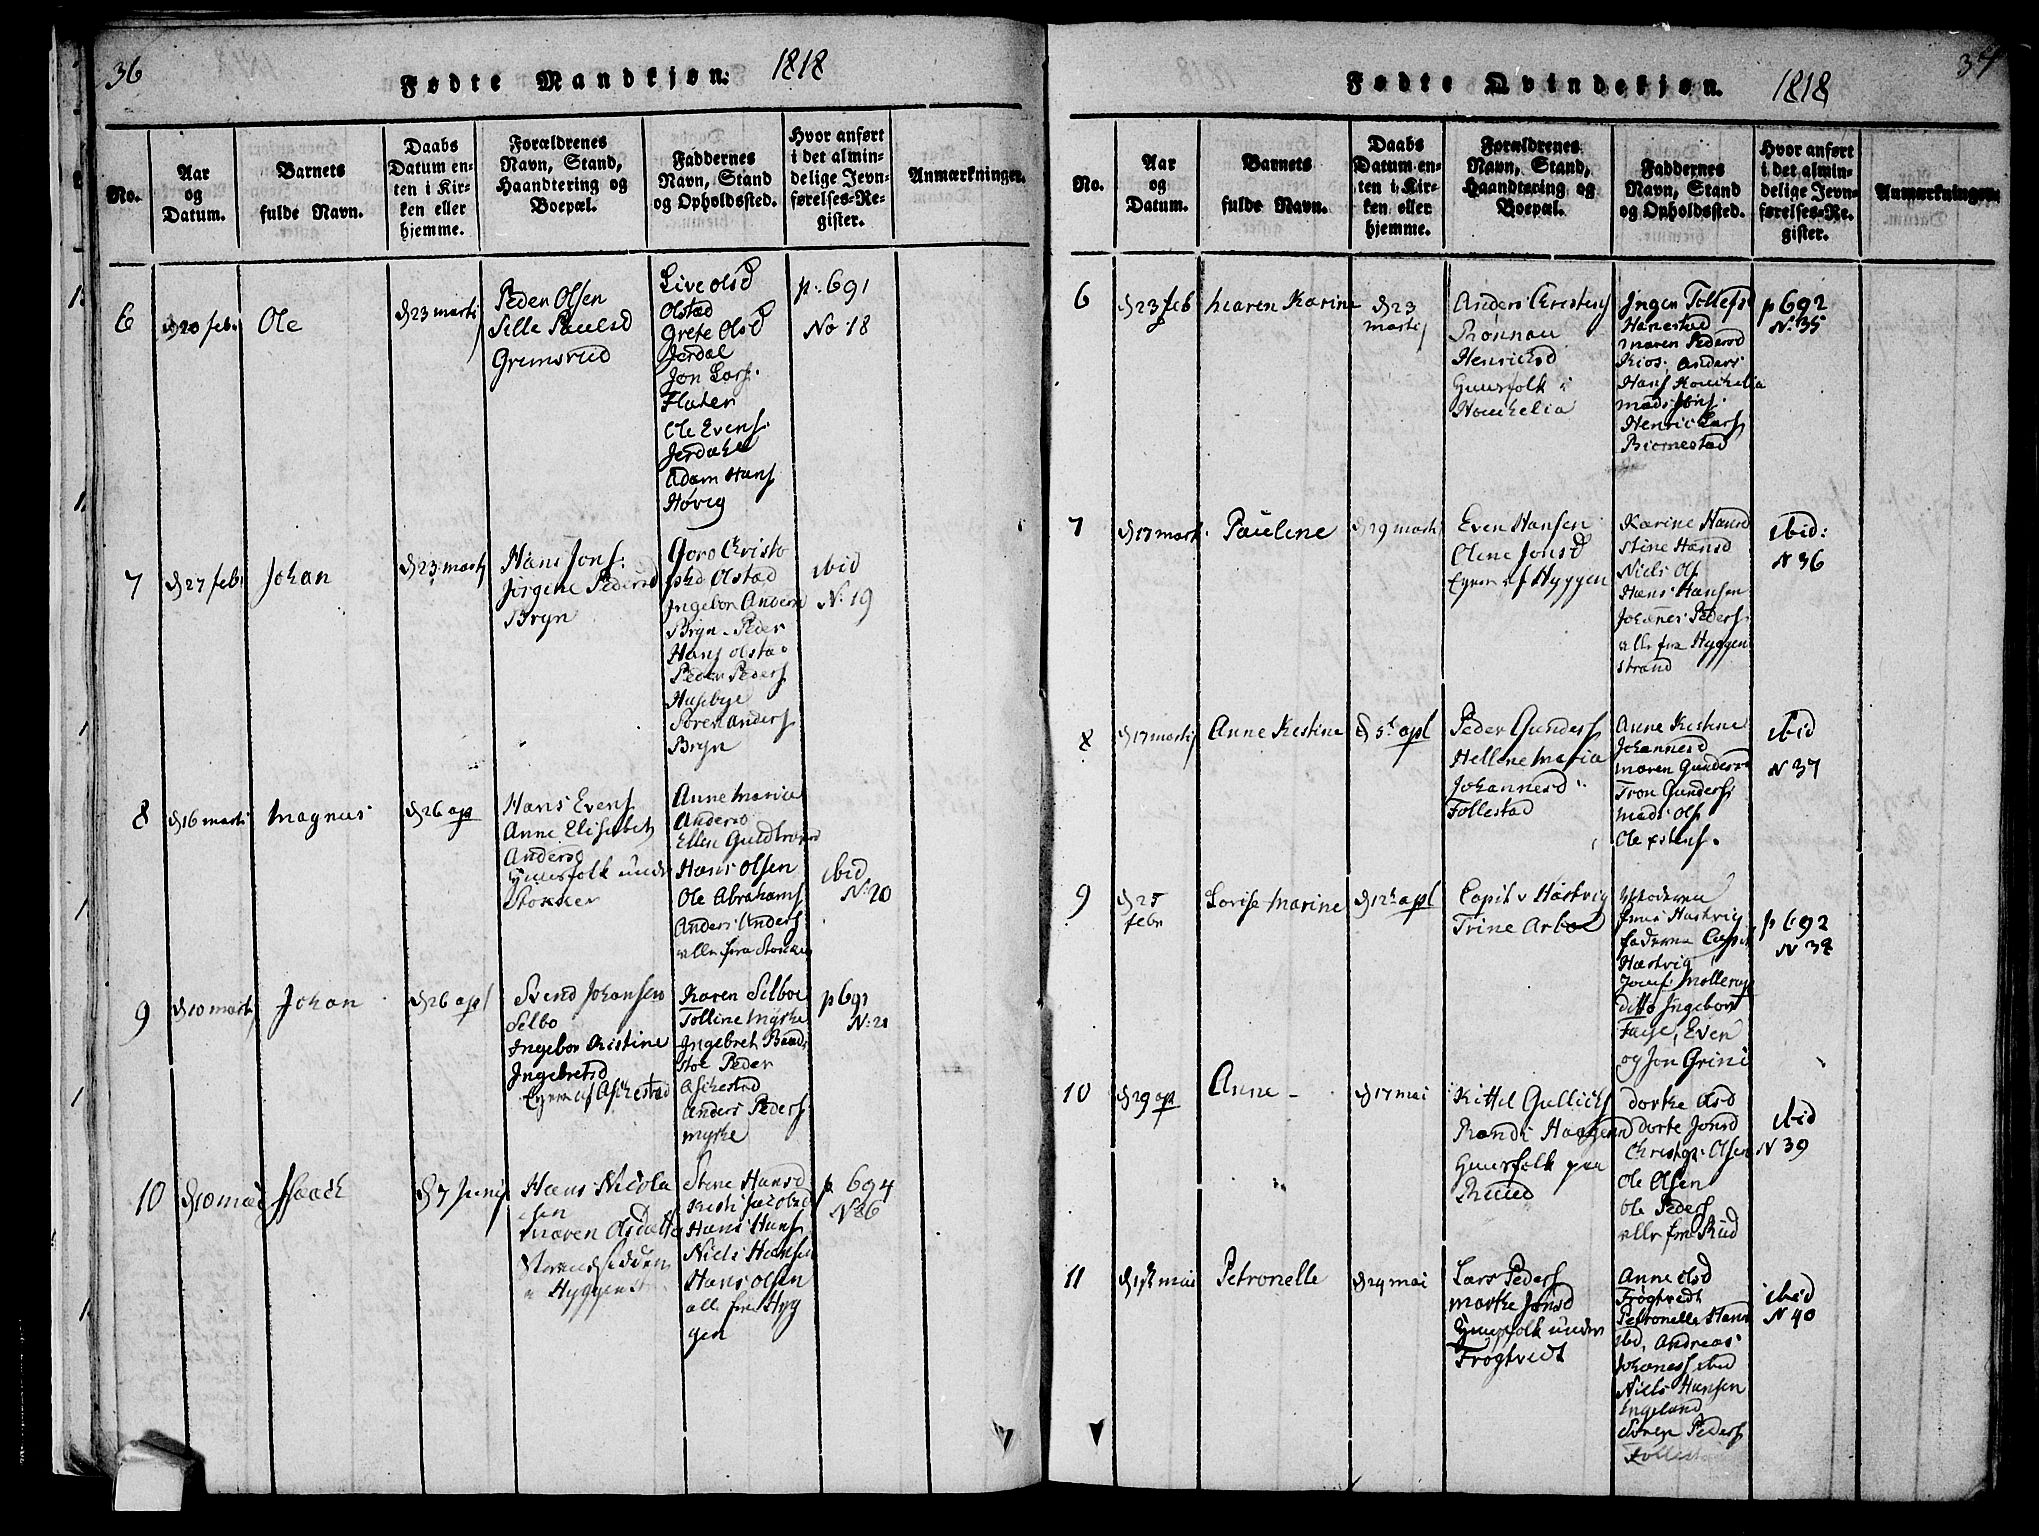 36
Fødte Mandkjøn: 1818
No.
Aar
og
Datum.
Barnets
fulde Navn.
Daabs
Datum en-
ten i Kir-
ken eller
hjemme.
Forældrenes
Navn, Stand,
Haandtering og
Boepæl.
Faddernes
Navn, Stand
og Opholdssted.
Hvor anført
i det almin-
delige Jevn-
førelses-Re-
gister.
Anmærkninger.
6
d 20 feb.
Ole
d 23 martij
Peder Olsen
Sille Paulsd
Gremsrud
Live olsd
Olstad
Grete Olsd
Jerdal
Jon Lars.
Flaten
Ole Evens.
Jerdahl
Adam Hans
Høvig
p. 691
No 18
7
d 27 febr
Johan
d 23 martij
Hans Jons.
Jörgine Pedersd
Bryn
Goro Christo
phd Olstad
Ingebor Anders
Bryn. Peder
Hans olstad
Peder Peders
Husebye
Søren Anders
Bryn
ibid
N. 19
8
d 16 marti
Magnus
d 26 apl
Hans Evens
Anne Elisabeth
Andersd
Huusfolk under
Stokker
Anne Maria
Andersd
Ellen Guldbrands
Hans Olsen
Ole Abrahams
Anders Anders
alle fra Stokker
ibid
N. 20
9
d 10 martij
Johan
d 26 apl
Svend Johansen
Selbo
Ingebor Kistine
Ingebretsd
Eyere af Askestad
Karen Selboe
Tolline Myhre
Ingebret Baads
stoe Peder
Askestad
Anders Peders
Myhre
p 691
N. 21
10
d 10 mai
Isaach
d 7 Junij
Hans Nicola
sen
Maren Olsdatter
Strandsidden
i Hyggen
Stine Hansd
Kisti Jacobsd
Hans Hans
Niels Hansen
Hans Olsen
alle fra Hyg
gen
p. 694
N 86
37
Fødte Qvindekjøn. 1818
No.
Aar
og
Datum.
Barnets
fulde Navn.
Daabs
Datum en-
ten i Kir-
ken eller
hjemme.
Forældrenes
Navn, Stand,
Haandtering og
Boepæl.
Faddernes
Navn, Stand
og Opholdssted.
Hvor anført
i det almin-
delige Jevn-
førelses-Re-
gister.
Anmærkninger.
6
d 23 feb
Maren Karine
d 23
martij
Anders Christens
Ronnau
Henrichsd
Huusfolk i
Houchelia
Ingen Tollefs
Hanestad
Maren Pedersd
Kios. Anders
Hans Houchelia
Mads Jons.
Henric Lars
Biornestad
p 692
N. 35
7
d 17 mart.
Paulene
d 29 marti
Even Hansen
Olene Jonsd
Eyere af Hyggen
Karine Hansd
Stine Hansd
Niels Ols
Hans Hansen
Johannes Peders.
alle fra Hyggen
strand
ibid:
N 36
8
d 17 martij
Anne Kistine
d 5t apl
Peder Gunders
Hellene Maria
Johannesd
Follestad
Anne Kistine
Johannesd
Maren Gundersd
Tron Gunders
Mads Ols
Ole
ibid
N 37
9
d 25
febr
Lovise Marine
d 12t apl
Capit v Hastvig
Trine Arboe
Moderen
frue Hastvig
faderen Capit
Hastvig
Josef Mollerop
ditto Ingebor
Faye, Even
og Jon Grini
p 692
N 38
10
d 29 apl
Anne –
d 17 mai
Kittil Gullichs
Randi Haagensd
Huusfolk paa
Ruud
Dorthe Olsd
Dorte Jonsd
Christop. Olsen
Ole Olsen
Ole Peders
alle fra Rud
ibid
N 39
11
d 1st mai
Petronelle
d 24 mai
Lars Peders
Marthe Jonsd
Huusfolk under
Frogtvedt
Anne olsd
Frogtvedt
Petronelle Hans
ibd, Andreas
Johaness ibid
Niels Hansen
Engeland
Søren Peders
Follestad
ibid
N 40